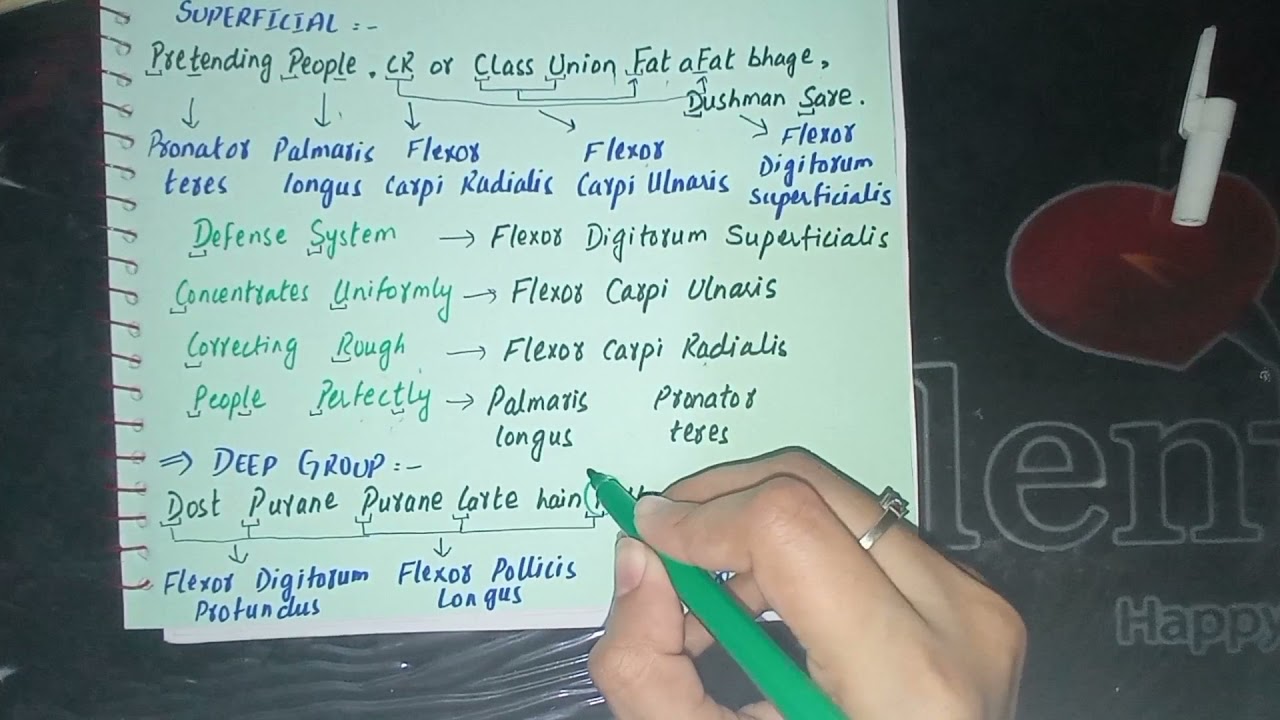 SUPERFICIAL :-
Pretending People, CR or Class Union Fat aFat bhage,
Dushman Sare.
Pronator teres
Palmaris longus
Flexor Carpi Radialis
Flexor Carpi Ulnaris
Flexor Digitorum Superficialis
Defense System → Flexor Digitorum Superficialis
Concentrates Uniformly → Flexor Carpi Ulnaris
Correcting Rough → Flexor Carpi Radialis
People Perfectly → Palmaris longus Pronator teres
⇒ DEEP GROUP :-
Dost Purane Purane Larte hain
Flexor Digitorum Profundus
Flexor Pollicis Longus
len
Happy